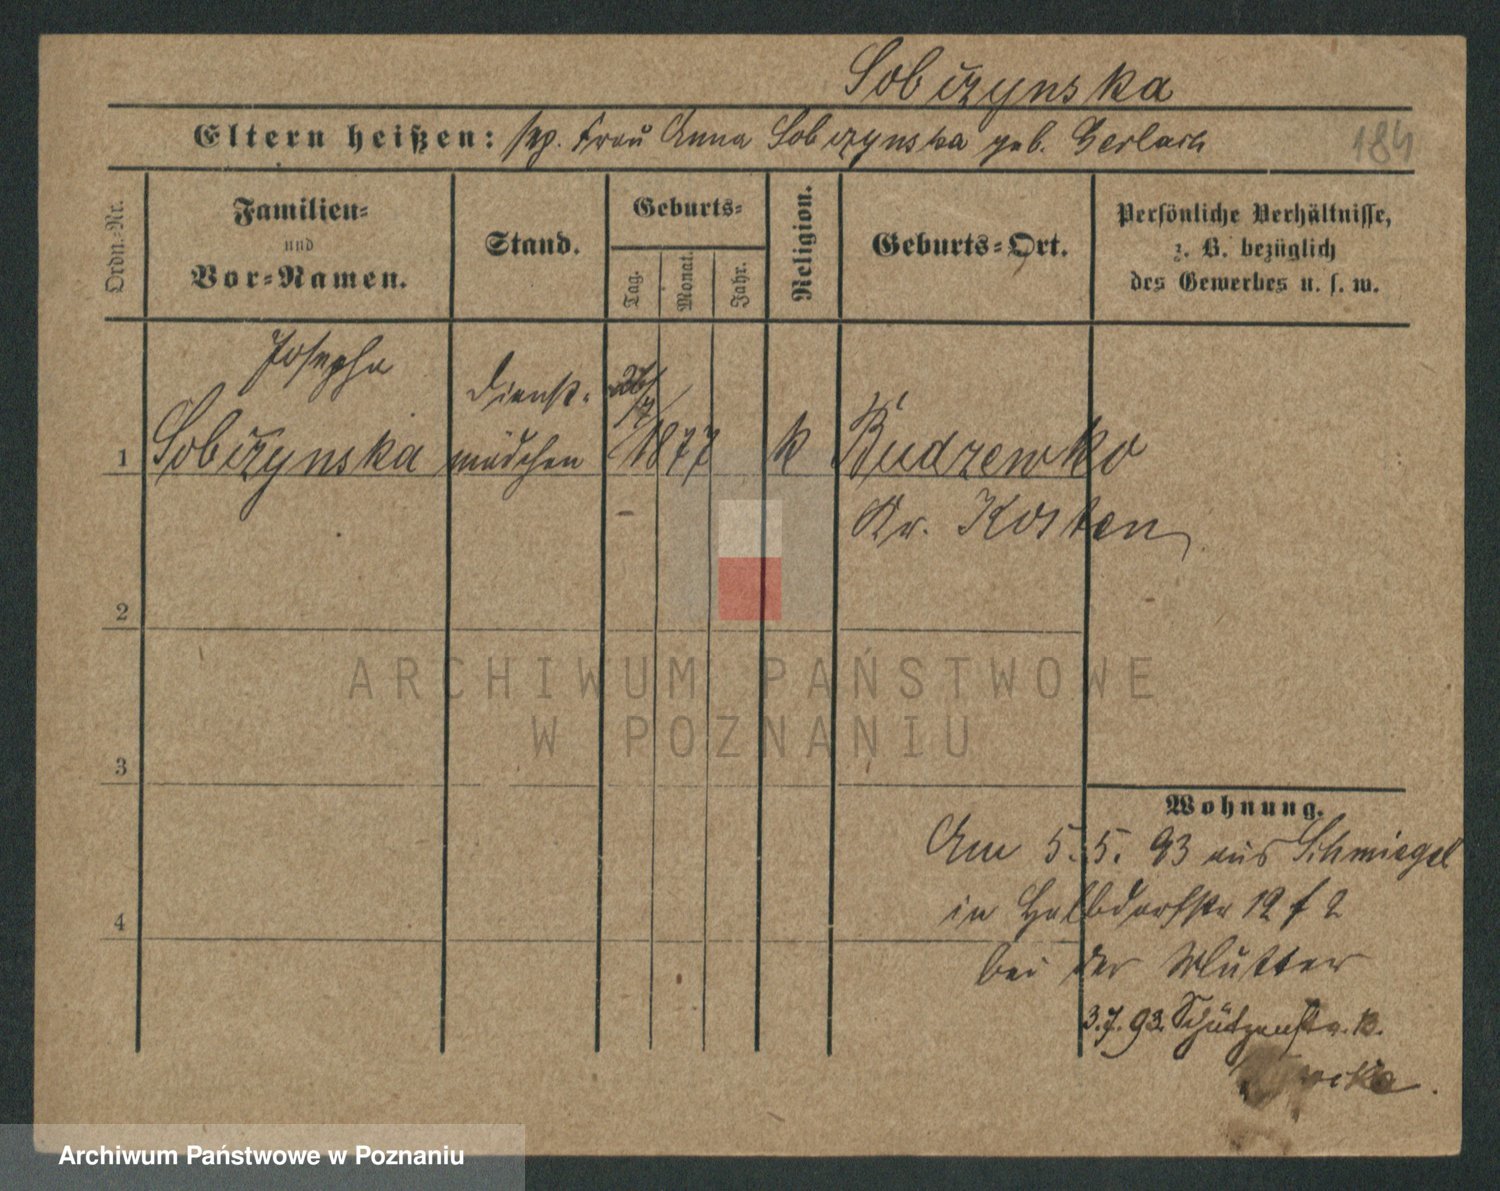 Sobczynska
Eltern heißen: sep. Frau Anna Sobczynska geb. Gerlach
184
Ordn.-Nr.
Familien-
und
Vor-Namen.
Stand.
Geburts-
Tag.
Monat.
Jahr.
Religion.
Geburts-Ort.
Persönliche Verhältnisse,
z. B. bezüglich
des Gewerbes u. s. w.
Josepha
Dienst-
1 Sobczynska mädchen 1877 k Budzewko
Kr. Kosten
2
ARCHIWUM PAŃSTWOWE
W POZNANIU
3
Wohnung.
Am 5.5.93 aus Schmiegel
in Halbdorfstr 12 f 2
4
bei der Mutter
3.7.93. Schützenstr. 13.
Archiwum Państwowe w Poznaniu